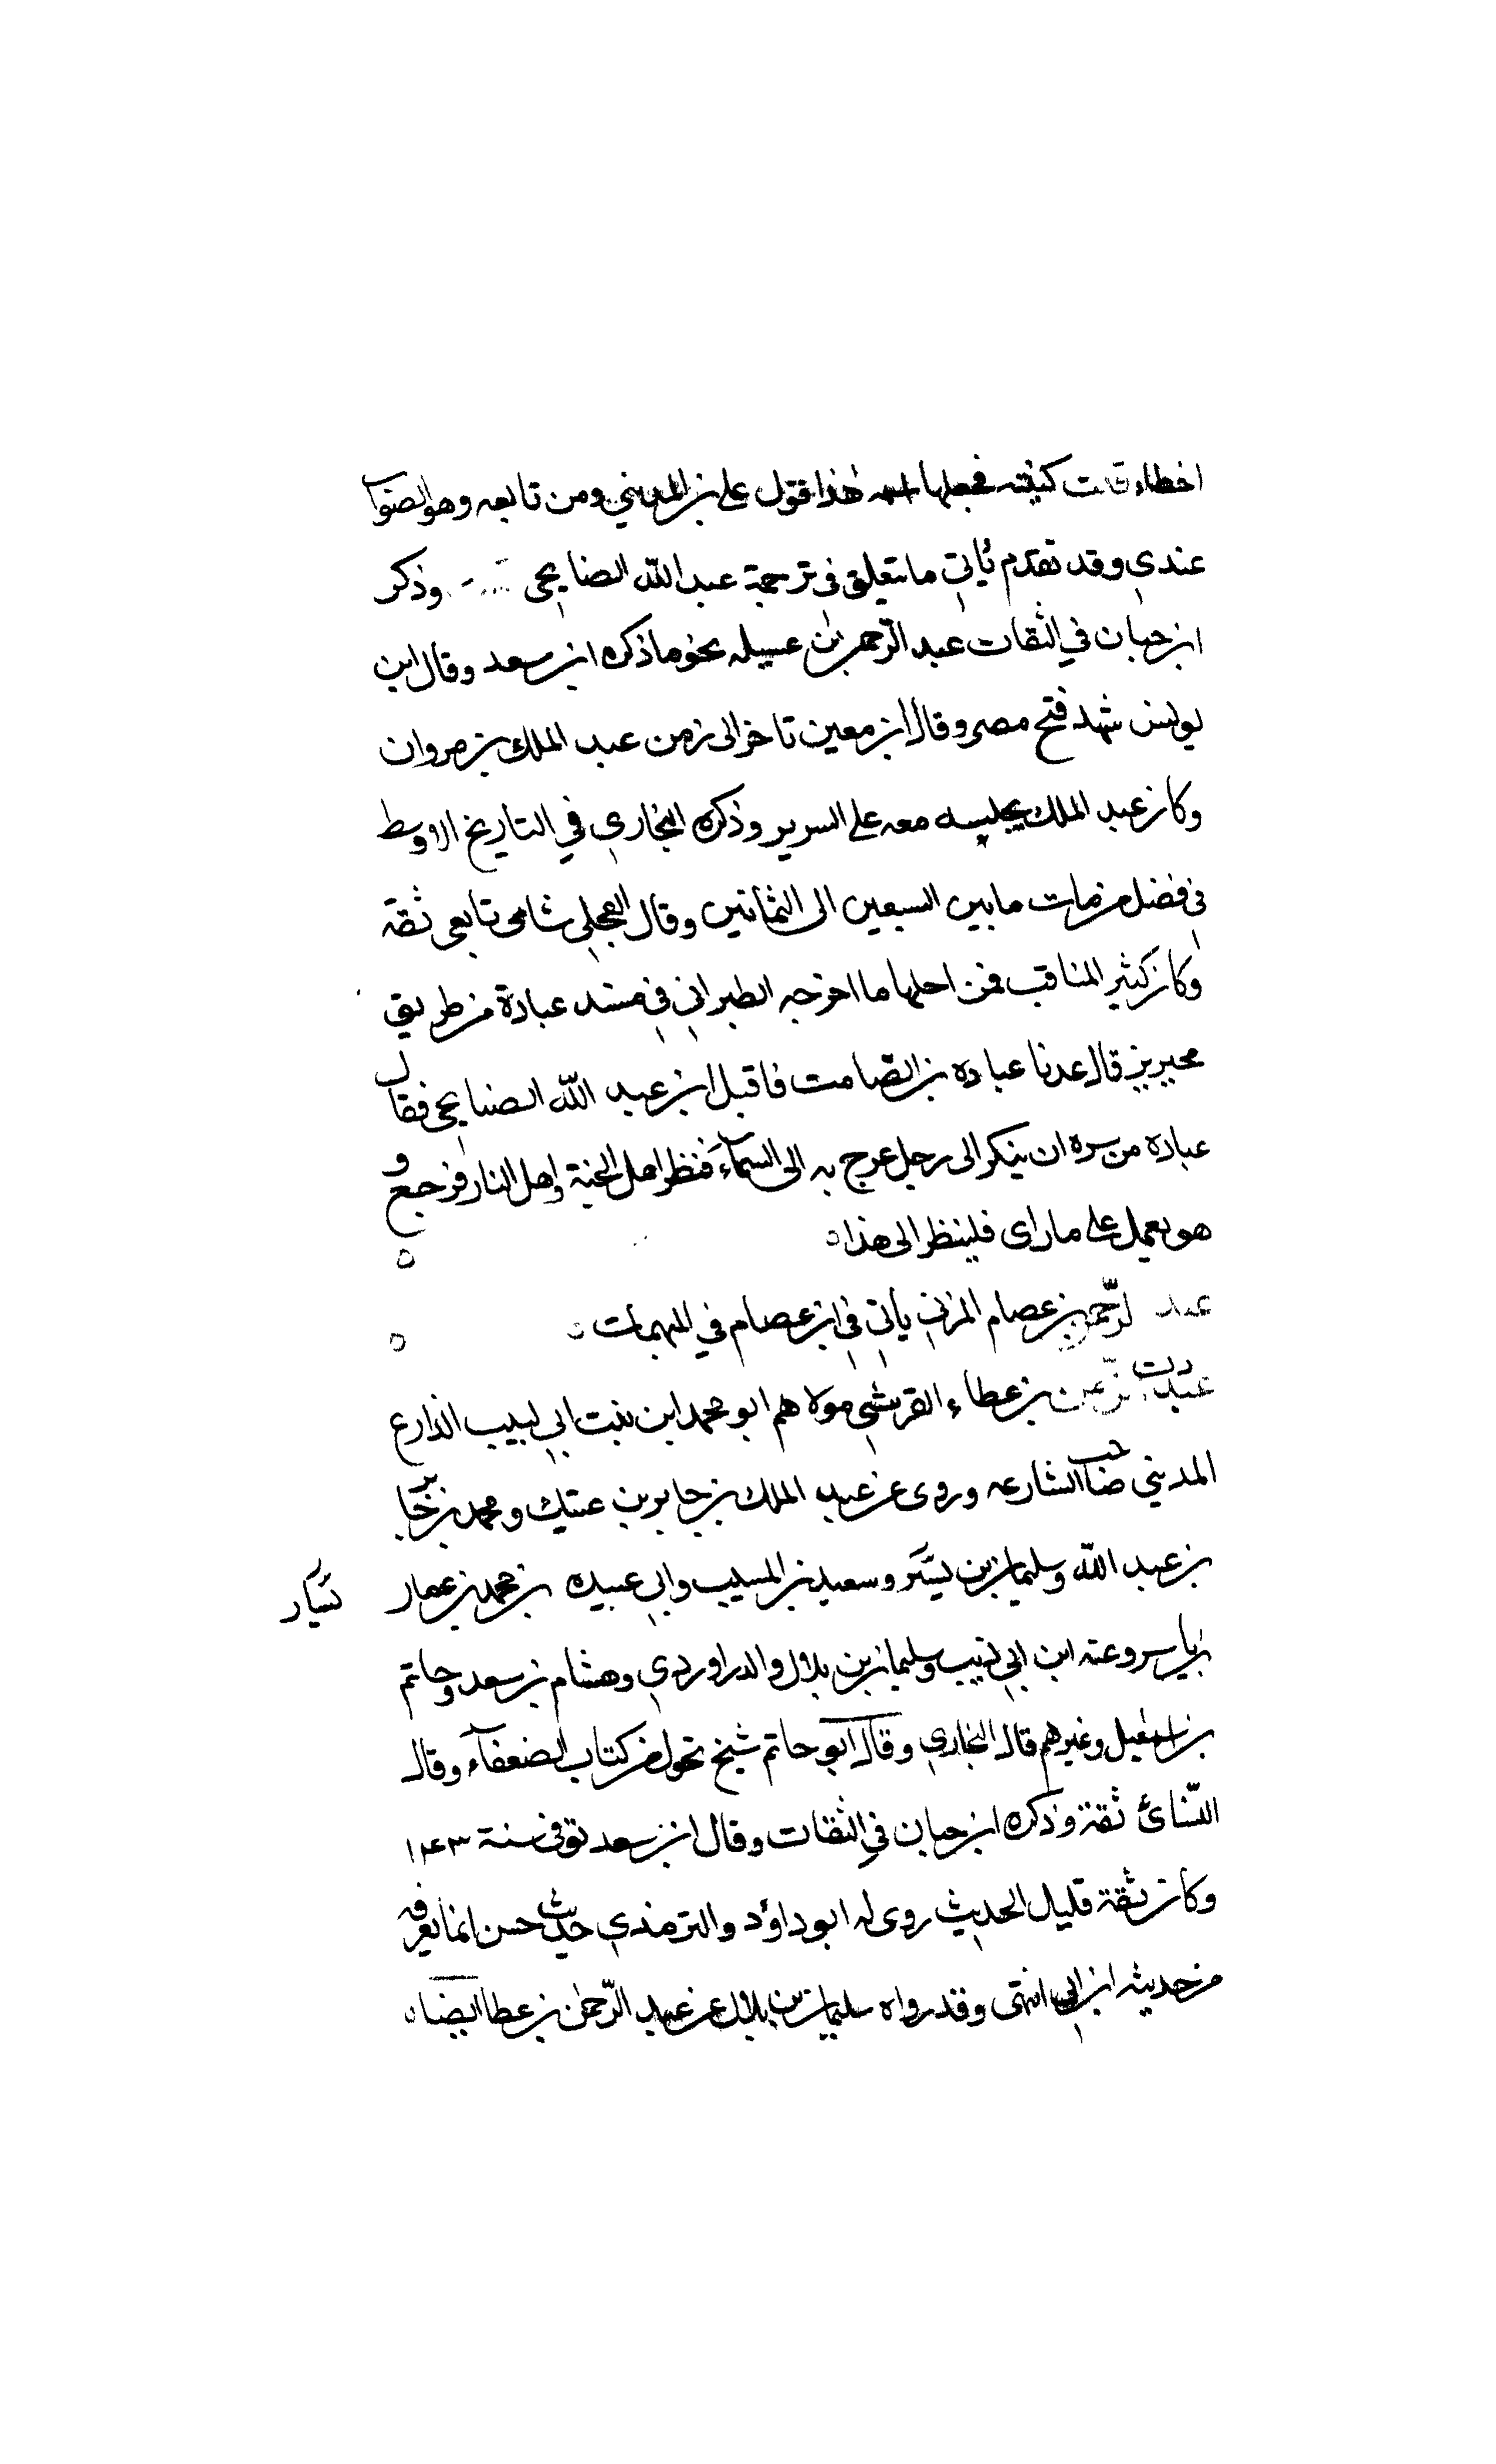 اخطاء قلبت كنيته فجعلها اسمه هذا قول على بن المديني ومن تابعه وهو الصواب
عندي وقد تقدم ياتي ما يتعلق في ترجمة عبد الله الصنابحى وذكر
ابن حبان في الثقات عبد الرحمن بن عسيله نحو ما ذكره ابن سعد وقال ابن
يونس شهد فتح مصر وقال ابن معين تاخر الى زمن عبد الملك بن مروان
وكان عبد الملك يجلسه معه على السرير وذكره البخاري في التاريخ الاوسط
في فضل من مات ما بين السبعين الى الثمانين وقال العجلي شامى تابعى ثقة
وكان كثير المناقب فمن احلها ما اخرجه الطبراني في مسند عبادة من طريق
محيريز قال عدنا عباده بن الصامت فاقبل ابن عبد الله الصنابحى فقال
عباده من سره ان ينكر الى رجل عرج به الى السماء فنظر اهل الجنة واهل النار فرجع و
هو يعمل على ما راى فلينظر الى هذا ه
عبد الرحمن بن عصام المزني ياتي في ابن عصام في المبهمات ه
دت
عبد الرحمن بن عطاء القرشي مولاهم ابو محمد ابن بنت ابي لبيب الذارع
المديني صاحب الشارعه وروى عن عبد الملك بن جابر بن عتيك ومحمد بن جابر
بن عبد الله وسليمان بن يسر وسعيد بن المسيب وابي عبيده بن محمد بن عمار
يسار
بن ياسر وعنه ابن ابي ذيب وسليمان بن بلال والدراوردي وهشام بن سعد وحاتم
بن اسمعيل وغيرهم قال البخاري وقال ابو حاتم شيخ تحول من كتاب الضعفاء وقال
النسائ ثقة وذكره ابن حبان في الثقات وقال ابن سعد توفى سنة ١٤٣
وكان ثقة قليل الحديث روى له ابو داؤد والترمذي حديث حسن انما يعرفه
من حديثه ابن ابي انتهى وقد رواه سليمان بن بلال عن عبد الرحمن بن عطا ايضا ه